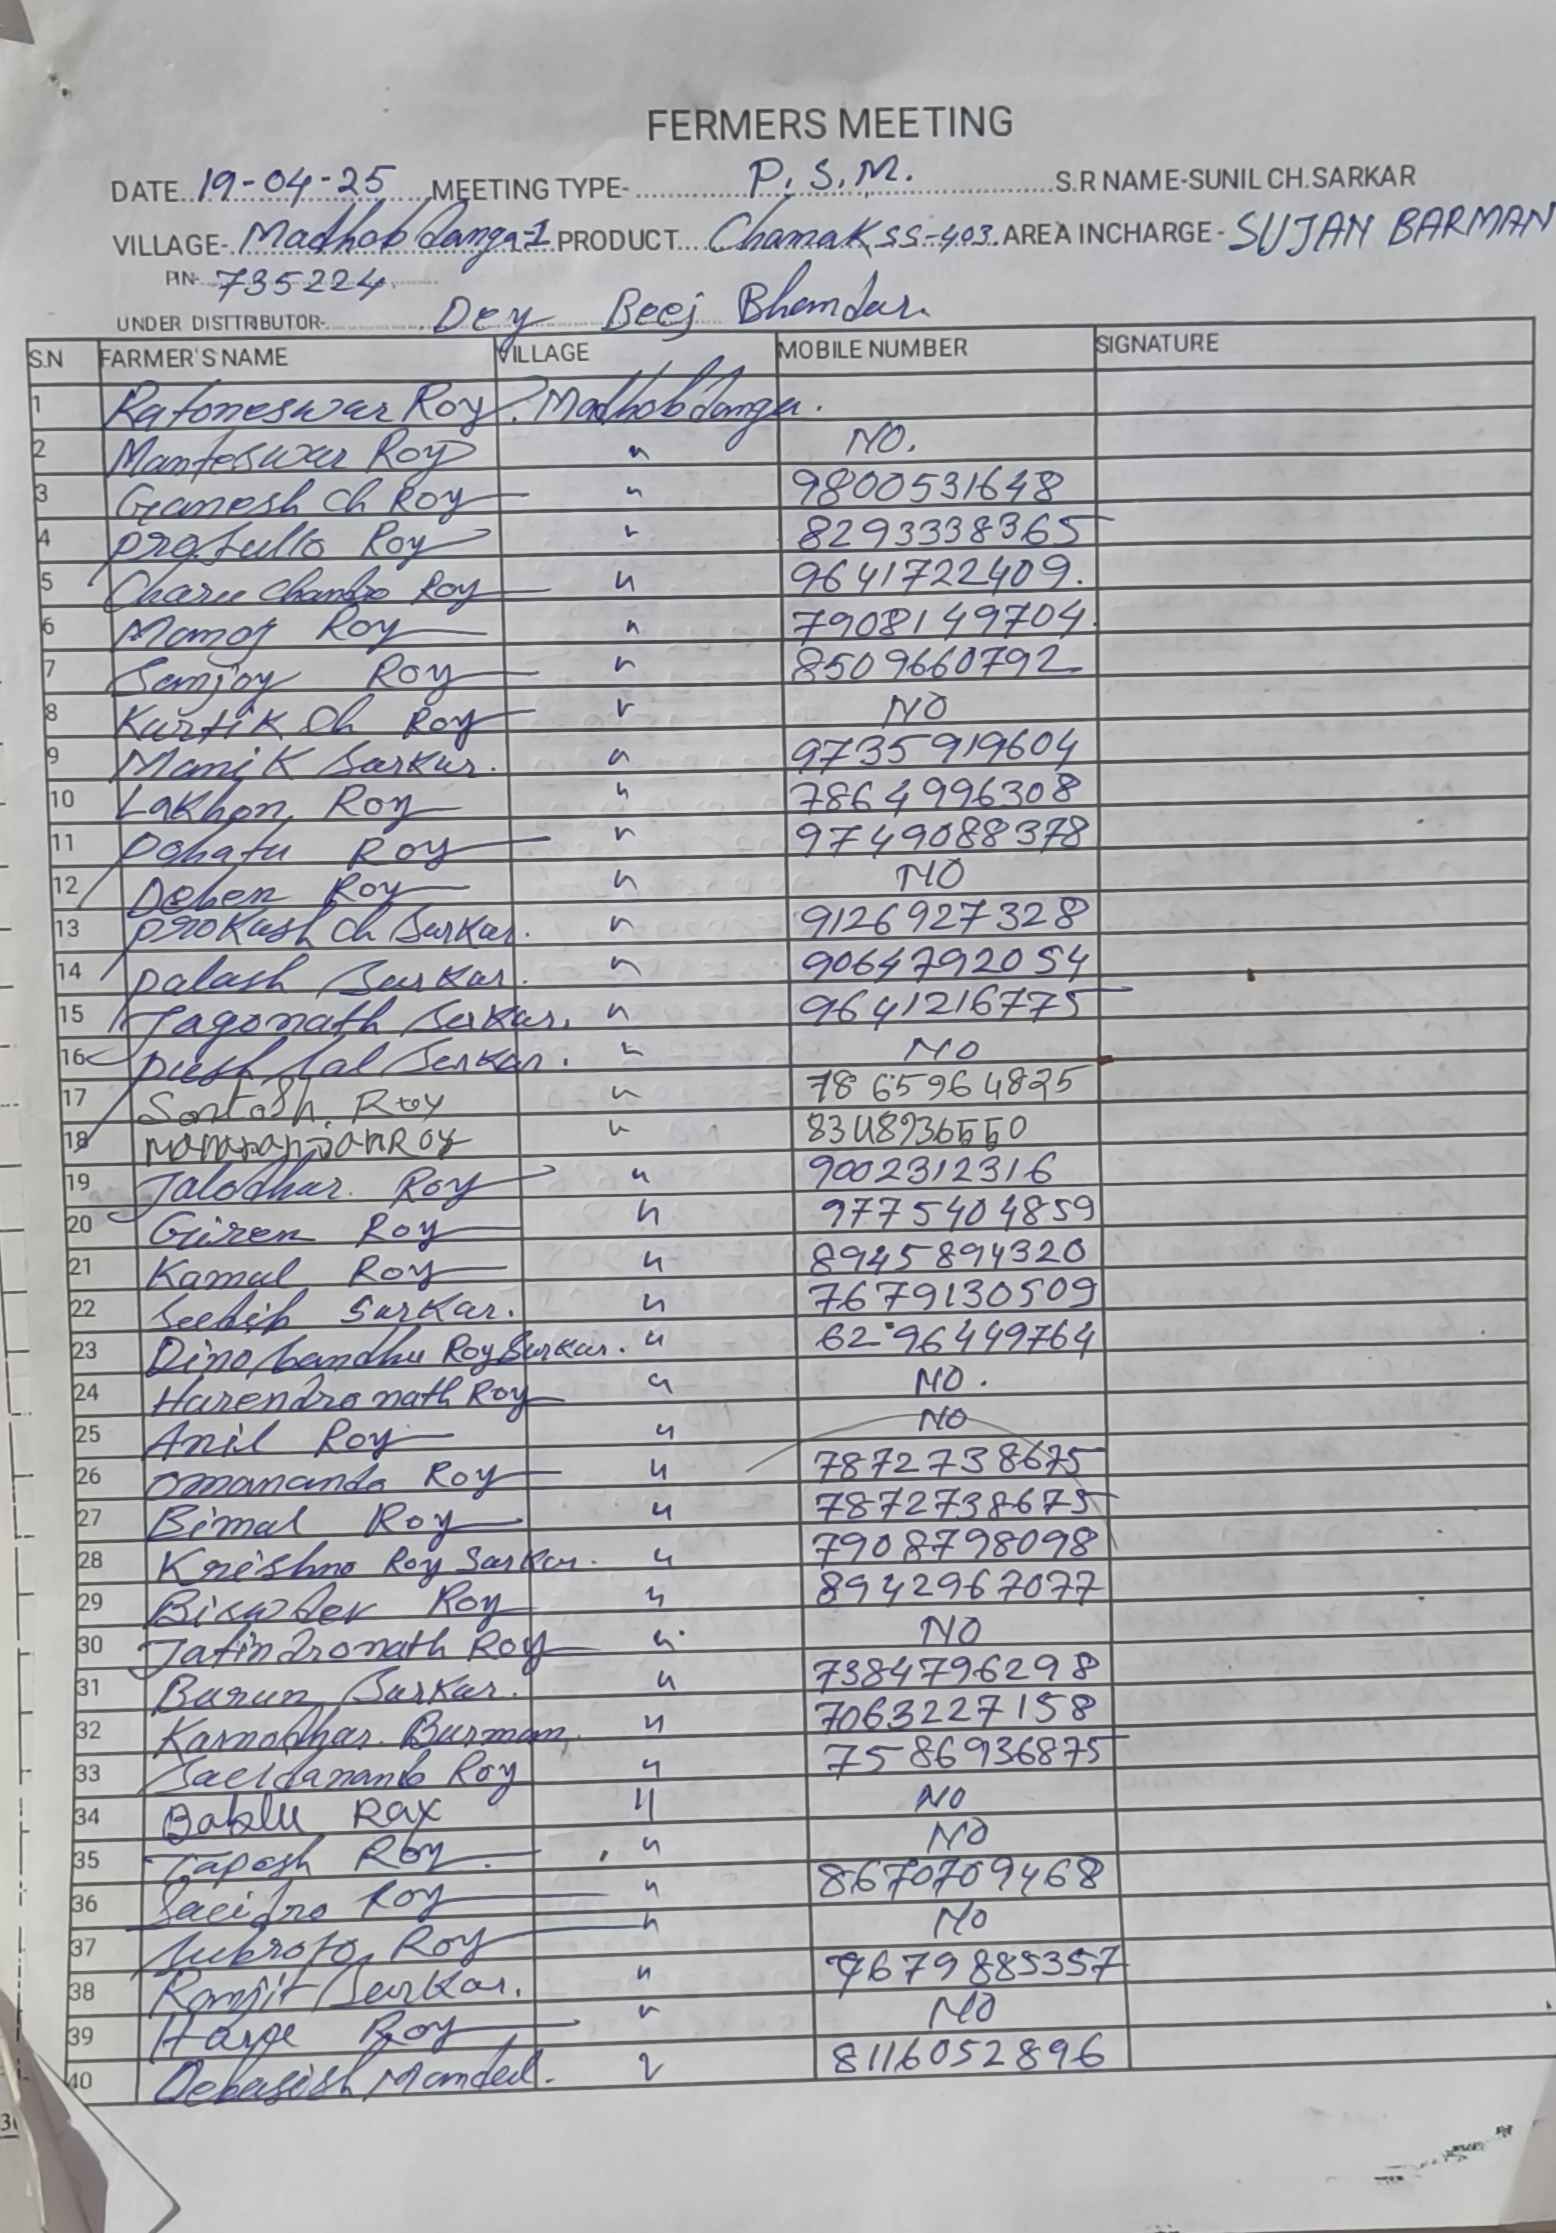 FERMERS MEETING
DATE..19-04-25....MEETING TYPE-..............P.S.M.....................S.R NAME-SUNIL CH.SARKAR
VILLAGE-.Madhobdanga-1.PRODUCT....Chamak SS-403.AREA INCHARGE-SUJAN BARMAN
PIN-.735224
UNDER DISTTRIBUTOR-..............Dey Beej Bhandar.
S.N FARMER'S NAME VILLAGE MOBILE NUMBER SIGNATURE
1 Ratoneswar Roy. Madhobdanga.
2 Manteswar Roy " NO.
3 Ganesh Ch Roy " 9800531648
4 profullo Roy " 8293338365
5 Charu Chandro Roy " 9641722409.
6 Manoj Roy " 7908149704.
7 Sanjoy Roy " 8509660792
8 Kartik Ch Roy " NO
9 Manik Sarkar. " 9735919604
10 Lakhon Roy " 7864996308
11 pohatu Roy " 9749088378
12 Deben Roy " NO
13 prokash ch Sarkar. " 9126927328
14 palash Sarkar. " 9064792054
15 Jagonath Sarkar. " 9641216775
16 lal Sarkar. " NO
17 Santosh. Roy " 7865964825
18 Manaranjan Roy " 8348936550
19 Jalodhar. Roy " 9002312316
20 Giren Roy " 9775404859
21 Kamal Roy " 8945894320
22 Sarkar. " 7679130509
23 Dinobandhu Roy Sarkar. " 6296449764
24 Harendronath Roy " NO.
25 Anil Roy " NO
26 omananda Roy " 7872738675
27 Bimal Roy " 7872738675
28 Krishno Roy Sarkar. " 7908798098
29 Roy " 8942967077
30 Jatindronath Roy " NO
31 Barun Sarkar. " 7384796298
32 Karnodhar. Burman. " 7063227158
33 Roy " 7586936875
34 Bablu Ray " NO
35 Taposh Roy. " NO
36 Roy " 8670709468
37 Subroto Roy " NO
38 Ranjit Sarkar. " 9679885357
39 Roy " NO
40 Debasish Mandal. " 8116052896